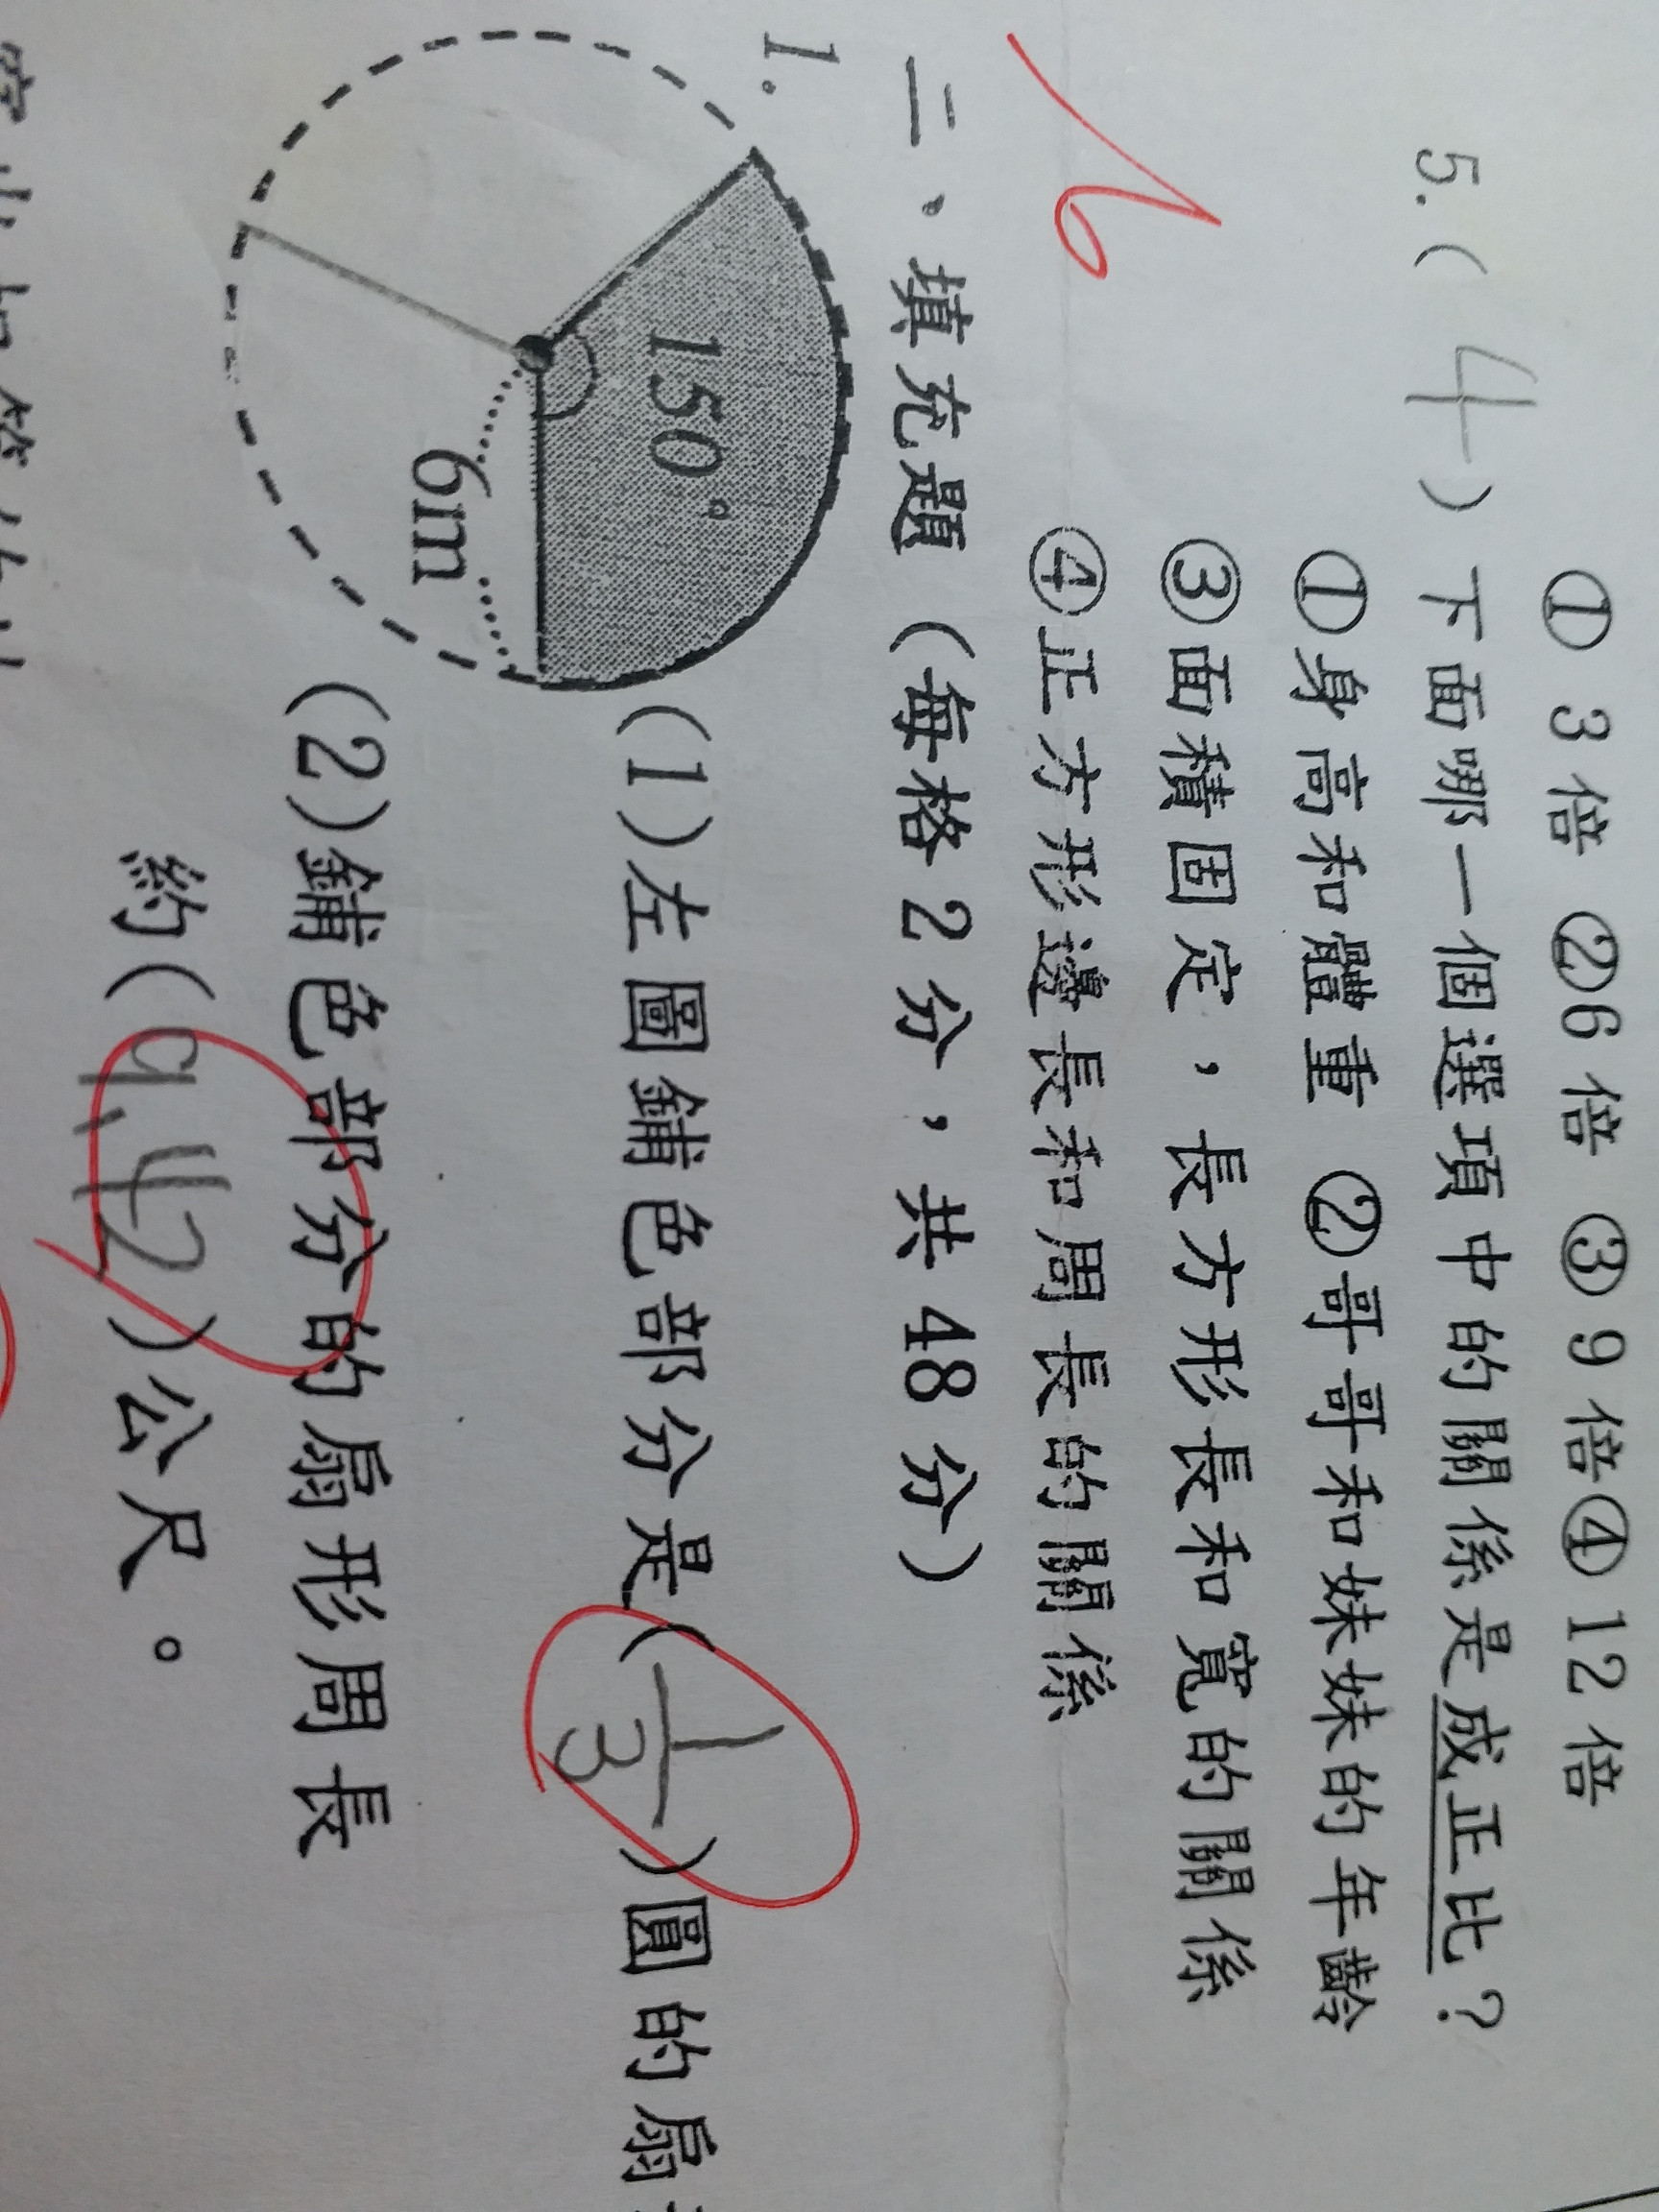 ① 3倍 ②6倍 ③9倍④12倍
5.(4)下面哪一個選項中的關係是成正比?
①身高和體重 ②哥哥和妹妹的年齡
③面積固定,長方形長和寬的關係
④正方形邊長和周長的關係
二、填充題(每格2分,共48分)
1.
150°
6m
(1)左圖鋪色部分是(1/3)圓的扇
(2)鋪色部分的扇形周長
約(9.42)公尺。